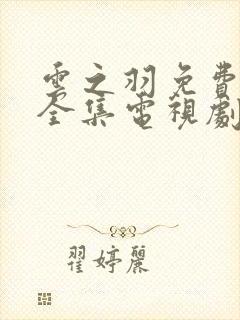 雲之羽免費
全集電視劇
翟婷麗